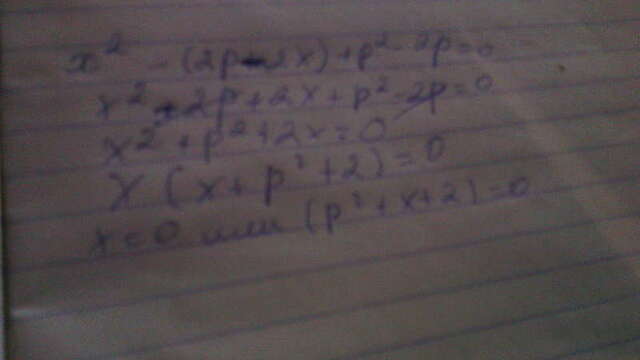 x² - (2p - 2x) + p² - 2p = 0
x² - 2p + 2x + p² - 2p = 0
x² + p² + 2x = 0
x (x + p² + 2) = 0
x = 0 или (p² + x + 2) = 0